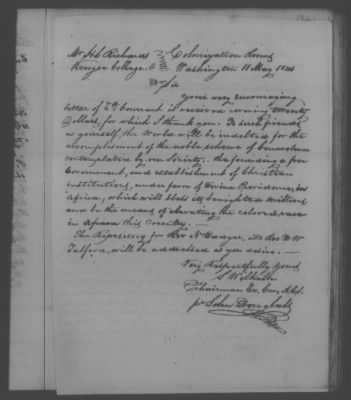 Mr H L Richards Colonization Rooms
Kenyon College. O Washington 11 May 1841
Dr Sir
Your very encouraging
letter of 4th Current is received covering twenty
dollars, for which I thank you. To such friends
as yourself, the world will be indebted for the
accomplishment of the noble scheme of benevolence
contemplated by our Society. The founding a free
Government, and establishment of Christian
institutions, under favor of Divine Providence, in
Africa, which will bless its benighted millions
and be the means of elevating the colored race
in Africa this country.
The Repository for Rev N Badger, and Rev D W
Tolford, will be addressed as you desire.
Very Respectfully Yours
S Wilkeson
Chairman Ex. Com, A.C.S.
pr John Douglass